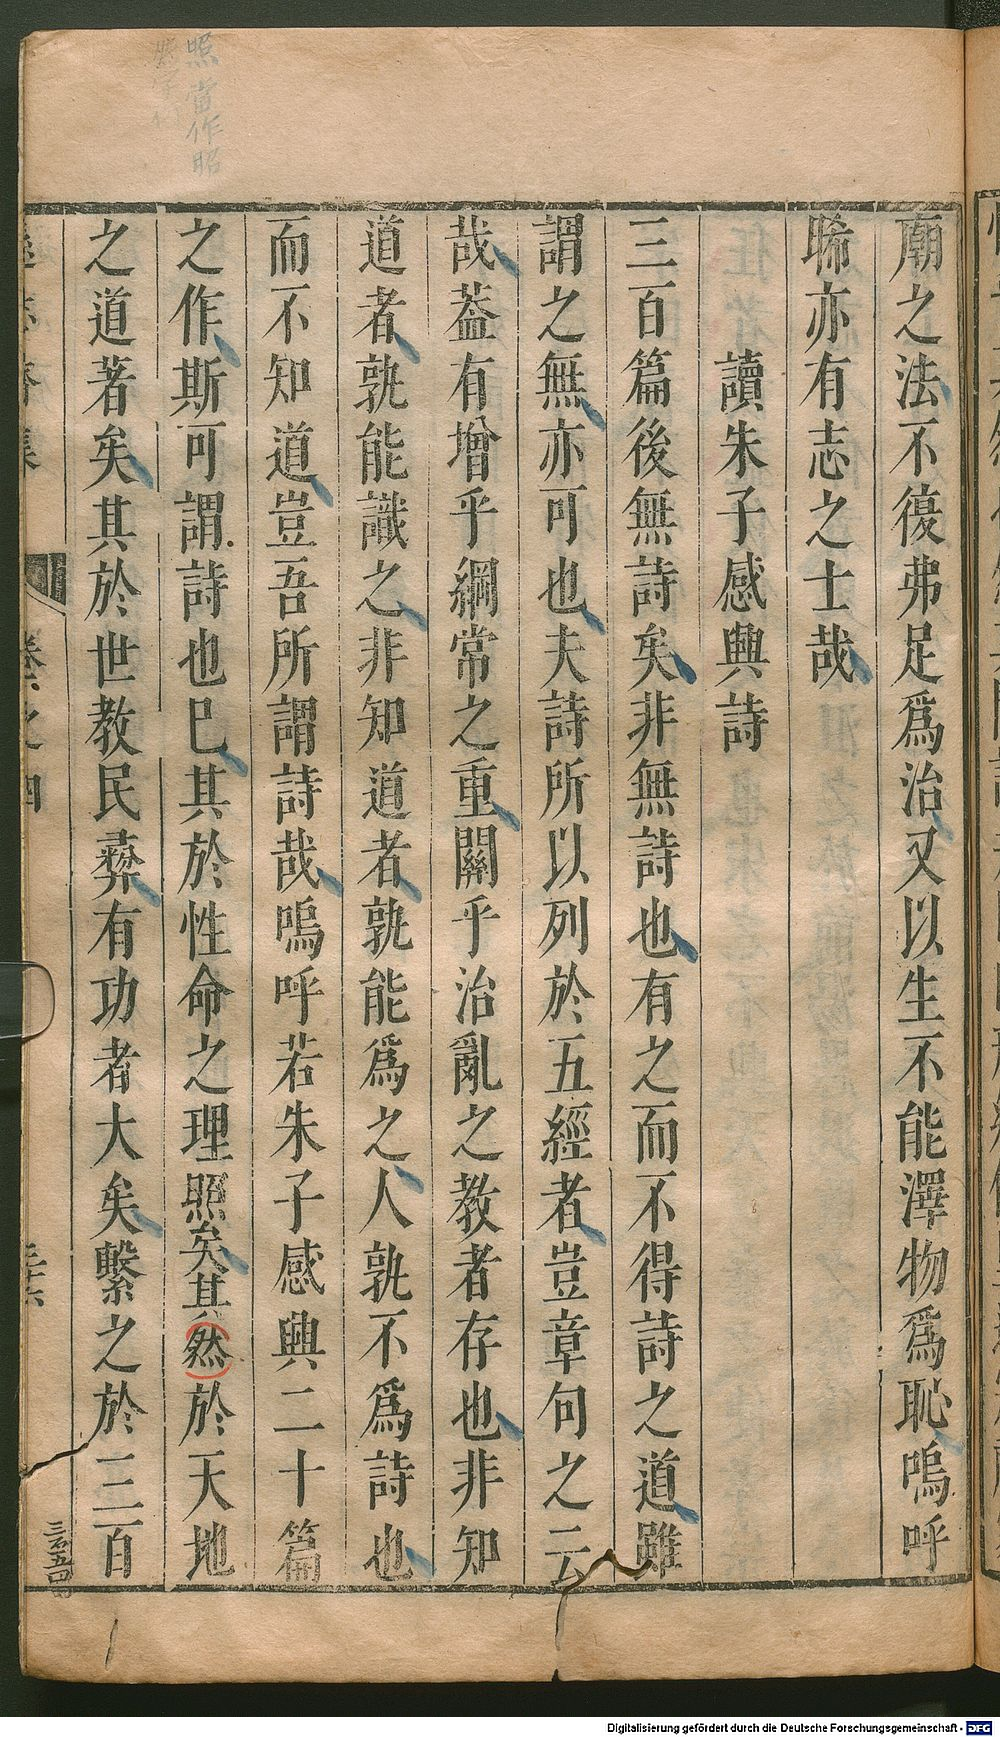 廟之法不復弗足爲治又以生不能澤物爲恥嗚呼
睎亦有志之士哉
讀朱子感興詩
三百篇後無詩矣非無詩也有之而不得詩之道雖
謂之無亦可也夫詩所以列於五經者豈章句之云
哉葢有增乎綱常之重關乎治亂之教者存也非知
道者孰能識之非知道者孰能爲之人孰不爲詩也
而不知道豈吾所謂詩哉嗚呼若朱子感興二十篇
之作斯可謂詩也巳其於性命之理照矣其然於天地
之道著矣其於世教民彛有功者大矣繫之於三百
卷之四
照當作昭
Digitalisierung gefördert durch die Deutsche Forschungsgemeinschaft - DFG